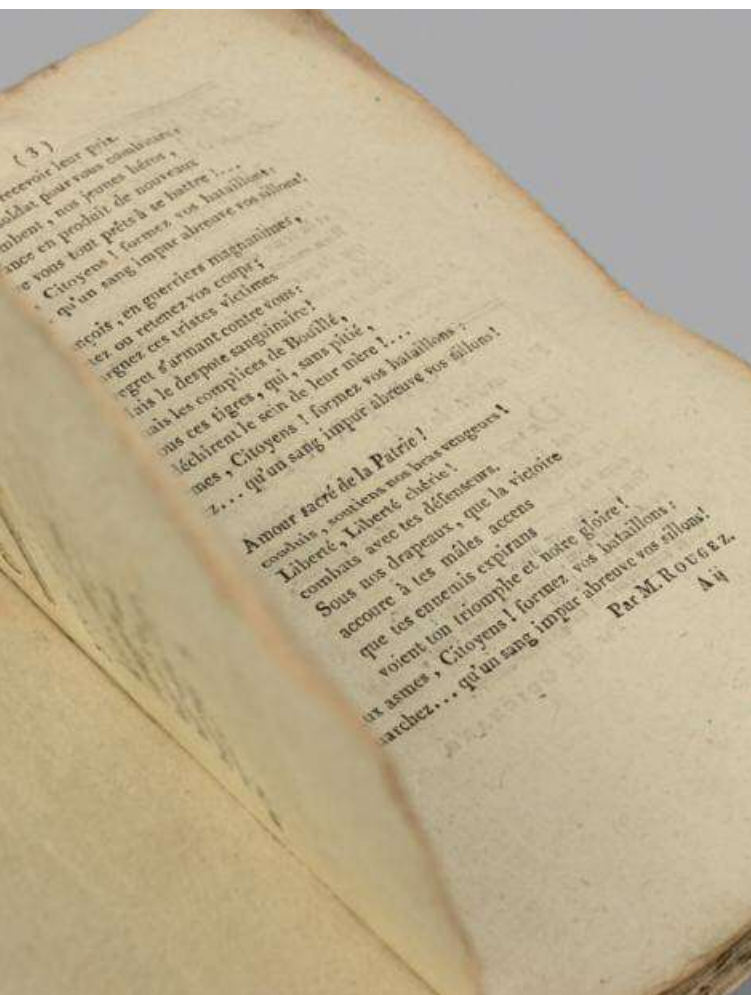 (3)
recevoir leur prix.
soldat pour vous combattre,
mbent, nos jeunes héros,
ance en produit de nouveaux
e vous tout prêts à se battre!...
, Citoyens! formez vos bataillons,
. qu'un sang impur abreuve vos sillons!
nçois, en guerriers magnanimes,
ez ou retenez vos coups;
rgnez ces tristes victimes
egret s'armant contre vous:
lais le despote sanguinaire!
ais les complices de Bouillé,
ous ces tigres, qui, sans pitié,
léchirent le sein de leur mère!...
mes, Citoyens! formez vos bataillons:
z... qu'un sang impur abreuve vos sillons!
Amour sacré de la Patrie!
conduis, soutiens nos bras vengeurs!
Liberté, Liberté chérie!
combats avec tes défenseurs.
Sous nos drapeaux, que la victoire
accoure à tes mâles accens
que tes ennemis expirans
voient ton triomphe et notre gloire!
ux asmes, Citoyens! formez vos bataillons;
archez... qu'un sang impur abreuve vos sillons!
Par M. ROUGEZ.
A ij